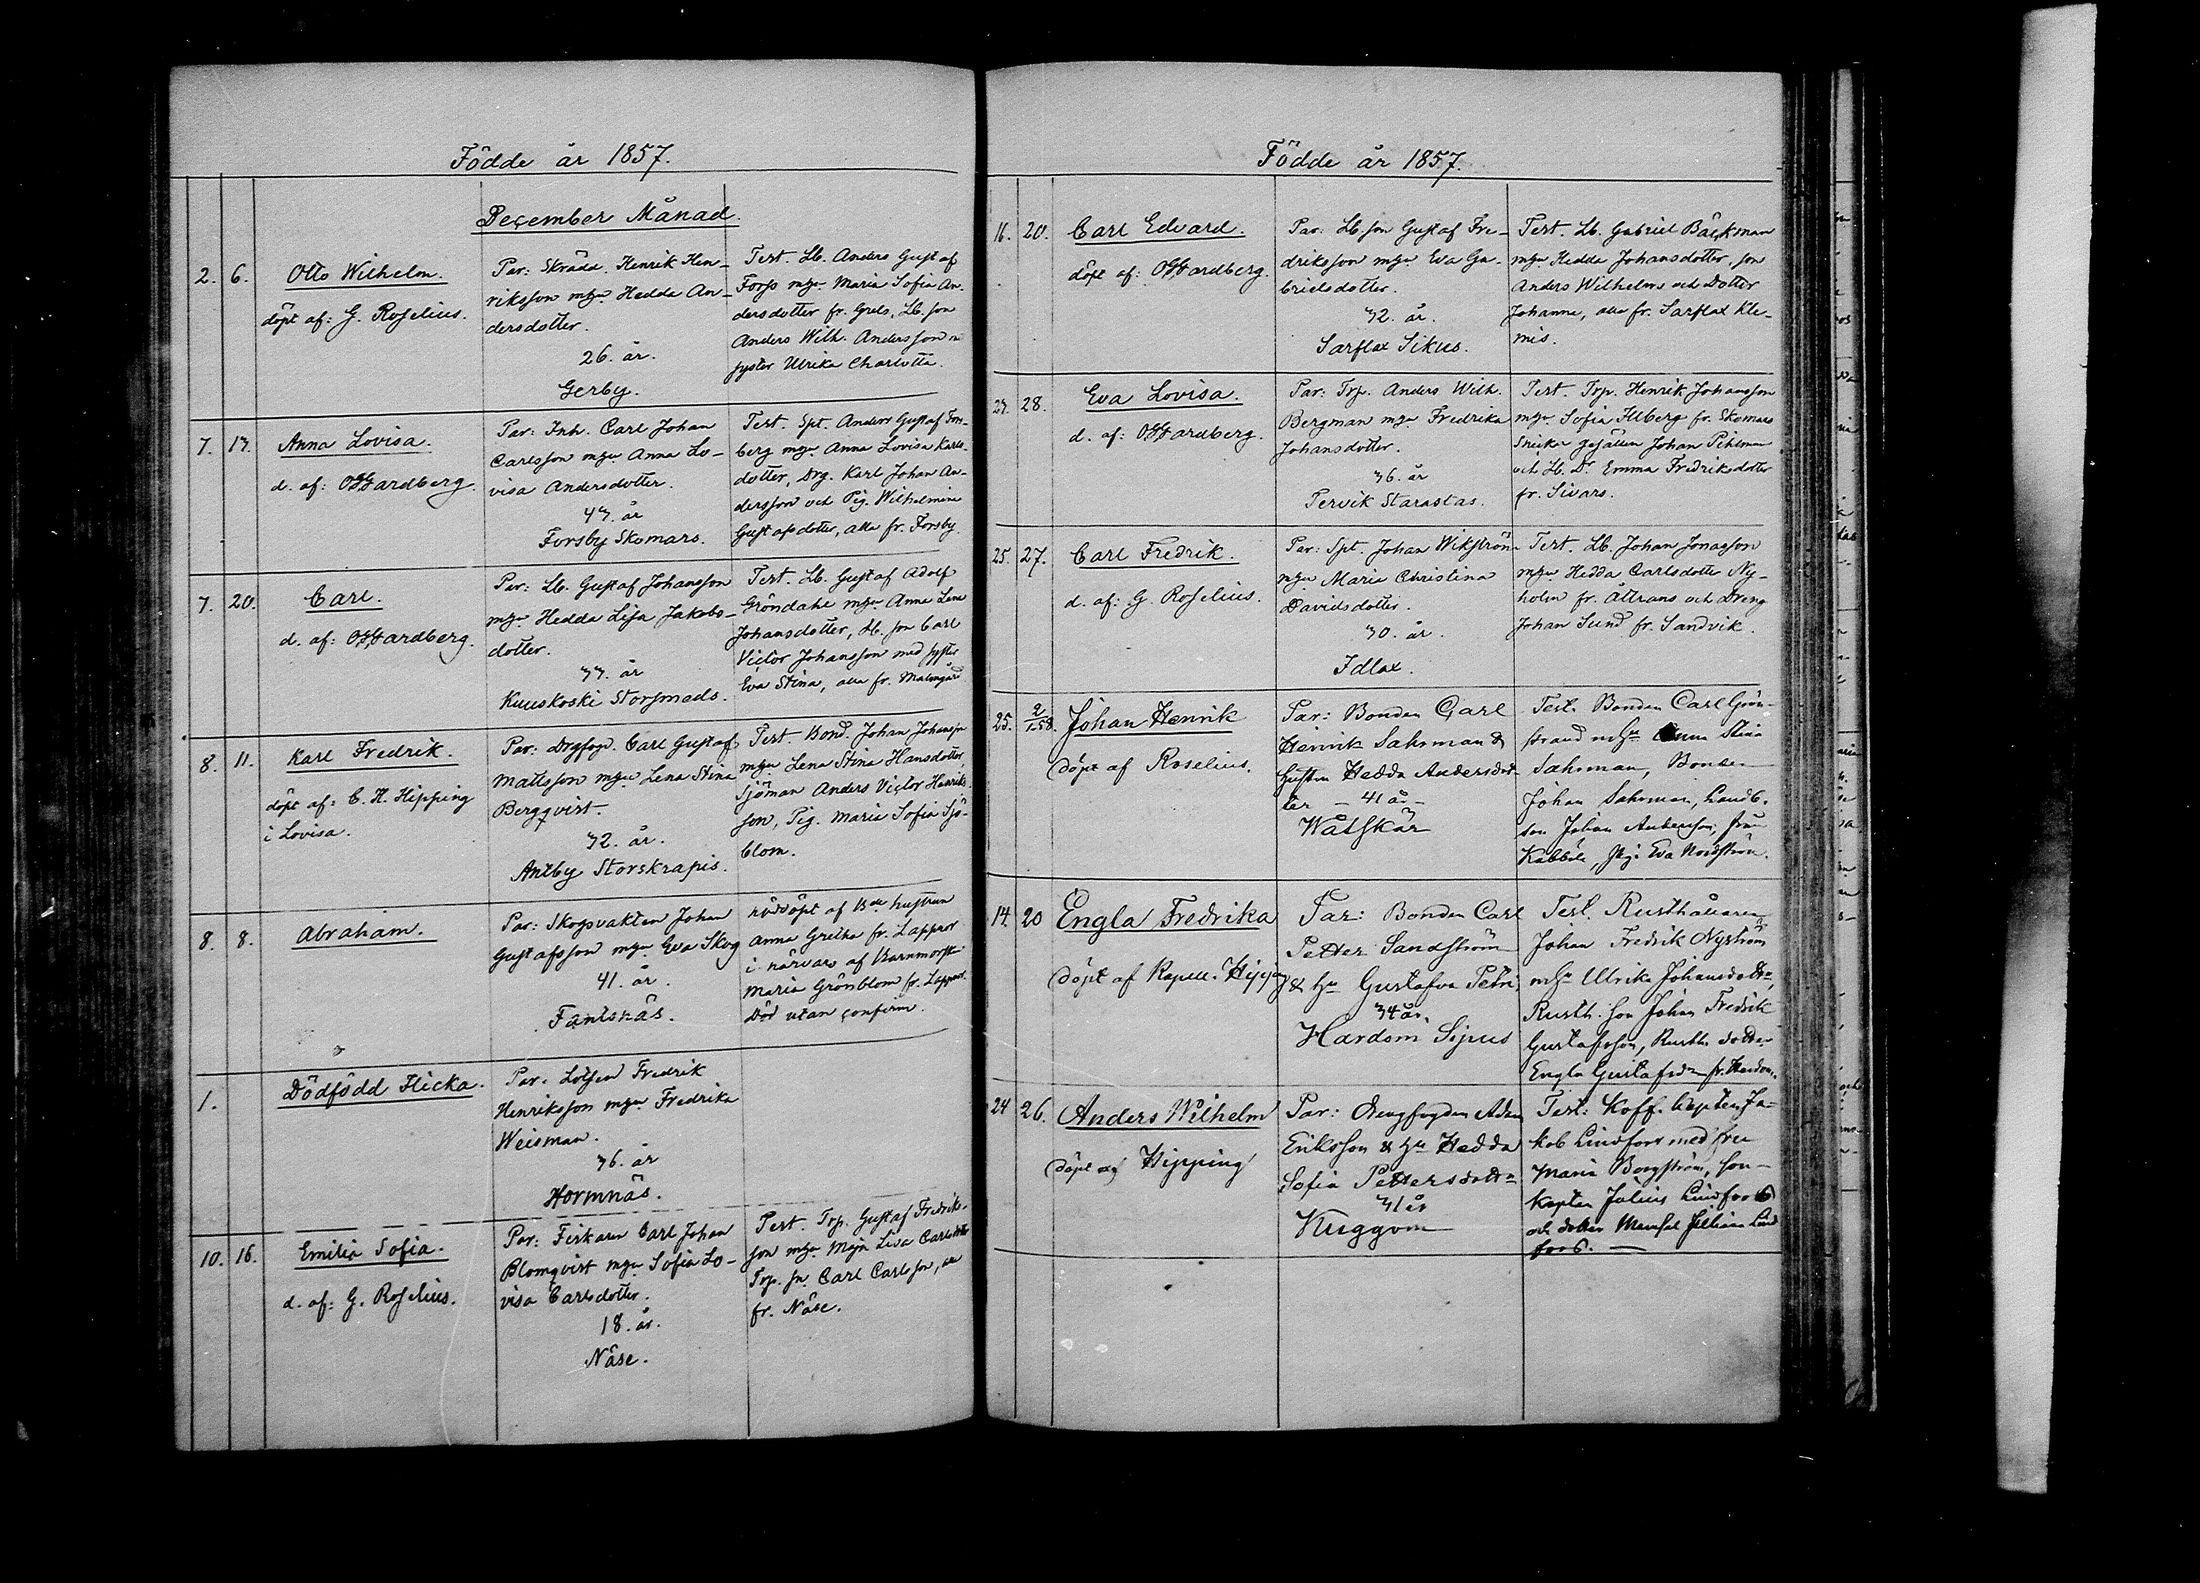 Födde år 1857.
December Månad.
2. 6. Otto Wilhelm.
döpt af: G. Roselius.
Par: Skrädd. Henrik Hen-
riksson m hu Hedda An-
dersdotter.
26. år.
Gerby.
Test. Lb. Anders Gustaf
Forss m hu Maria Sofia An-
dersdotter fr. Grels, Lb. son
Anders Wilh. Andersson m
syster Ulrika Charlotta.
7. 13. Anna Lovisa.
d. af: O Hardberg.
Par: Inh. Carl Johan
Carlsson m hu Anna Lo-
visa Andersdotter.
43. år
Forsby Skomars.
Test. Spt. Anders Gustaf Fors-
berg m hu Anna Lovisa Karls-
dotter, Drg. Karl Johan An-
dersson och Pig. Wilhelmina
Gustafsdotter, alla fr. Forsby.
7. 20. Carl.
d. af: O Hardberg.
Par: Lb. Gustaf Johansson
m hu Hedda Lisa Jakobs-
dotter.
33. år
Kuuskoski Storsmeds.
Test. Lb. Gustaf Adolf
Gröndahl m hu Anna Lena
Johansdotter, Lb. son Carl
Victor Johansson med syster
Eva Stina, alla fr. Malmgård
8. 11. Karl Fredrik.
döpt af: C. H. Hipping
i Lovisa.
Par: Drgfogd. Carl Gustaf
Mattsson m hu Lena Stina
Bergqvist.
32. år.
Antby Storskrapis.
Test. Bond. Johan Johansson
m hu Lena Stina Hansdotter,
Sjöman Anders Victor Henriks-
son, Pig. Maria Sofia Sjö-
blom.
8. 8. Abraham.
Par: Skogsvakten Johan
Gustafsson m hu Eva Skog
41. år.
Fantsnäs.
nöddöpt af Bde hustrun
Anna Gretha fr. Lappror
i närvaro af Barnmorsk
Maria Grönblom fr. Lappor
Död utan confirm.
1. Dödfödd Flicka.
Par: Lotsen Fredrik
Henriksson m hu Fredrika
Weisman.
36. år
Hormnäs.
10. 16. Emilia Sofia.
d. af: G. Roselius.
Par: Fiskaren Carl Johan
Blomqvist m hu Sofia Lo-
visa Carlsdotter.
18. år.
Näse.
Test. Trp. Gustaf Fredriks-
son m hu Maja Lisa Carlsdotter
Trp. sn. Carl Carlsson, alla
fr. Näse.
Födde år 1857.
16. 20. Carl Edvard.
döpt af: O Hardberg.
Par: Lb son Gustaf Fre-
driksson m hu Eva Ga-
brielsdotter.
32. år.
Sarflax Sikus.
Test. Lb. Gabriel Bäckman
m hu Hedda Johansdotter, son
Anders Wilhelm och Dotter
Johanna, alla fr. Sarflax Kle-
mis.
23. 28. Eva Lovisa.
d. af: O Hardberg.
Par: Trp. Anders Wilh.
Bergman m hu Fredrika
Johansdotter.
36. år
Tervik Starastas.
Test. Trp. Henrik Johansson
m hu Sofia Ahlberg fr. Skomars
Snickar gesällen Johan Pihlman
och Lb. Dr Emma Fredriksdotter
fr. Sivars.
25. 27. Carl Fredrik.
d. af: G. Roselius.
Par: Spt. Johan Wikström
m hu Maria Christina
Davidsdotter.
30. år.
Idlax.
Test. Lb. Johan Jonasson
m hu Hedda Carlsdotter Ny-
holm fr. Allrans och Dreng
Johan Sund fr. Sandvik.
25. 2/1 58. Johan Henrik
döpt af Roselius.
Par: Bonden Carl
Henrik Sahrman &
Hustru Hedda Andersdot-
ter - 41 år -
Wåtskär
Test. Bonden Carl Grön-
strand m hu Anna Stina
Sahrman, Bonden
Johan Sahrman, Landb.
son Johan Andersson, från
Kabböle, Pig. Eva Nordström.
14. 20 Engla Fredrika
döpt af Kapell. Hipping
Par: Bonden Carl
Petter Sandström
& hu Gustafva Petri
34 år.
Hardom Sipus
Test. Rusthållaren
Johan Fredrik Nyström
m hu Ulrika Johansdotter,
Rusth. son Johan Fredrik
Gustafsson, Rusth. dotter
Engla Gustafsdr fr. Hardom.
24 26. Anders Wilhelm
döpt af Hipping
Par: Drengfogden Adam
Eriksson & hu Hedda
Sofia Pettersdotter
31 år
Kuggom
Test: Koff. Kapten Ja-
kob Lindfors med fru
Maria Borgström, son
Kapten Julius Lindfors
och dotter Mamsel Juliana Lind-
fors.